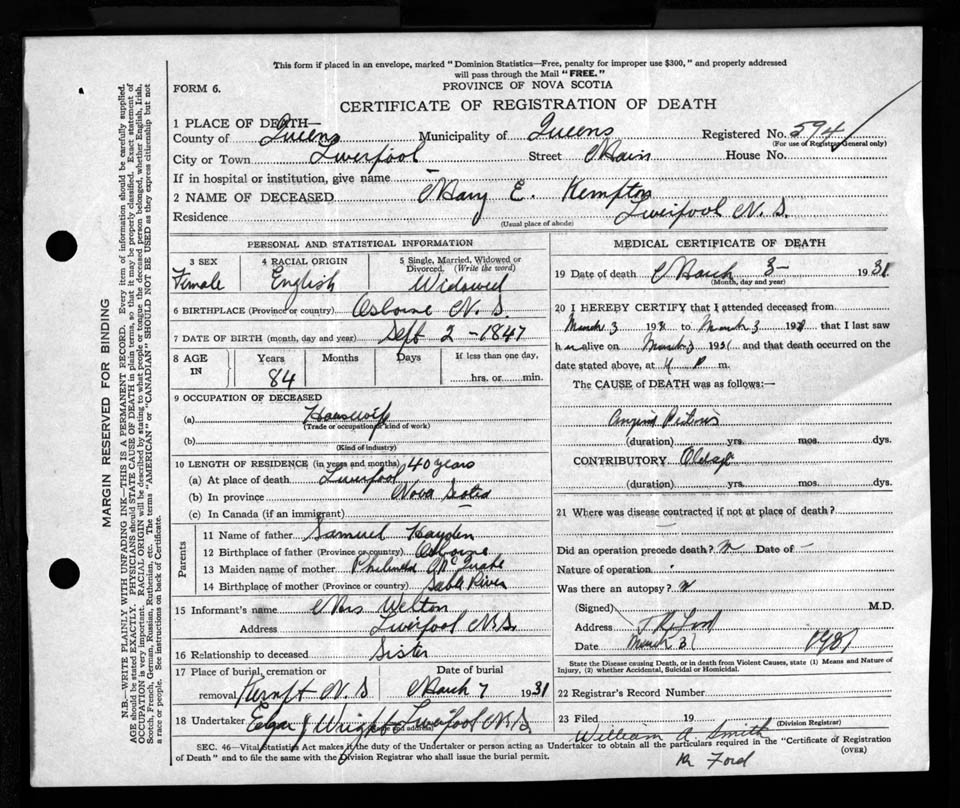 This form if placed in an envelope, marked "Dominion Statistics—Free, penalty for improper use $300," and properly addressed
will pass through the Mail "FREE."
FORM 6.
PROVINCE OF NOVA SCOTIA
CERTIFICATE OF REGISTRATION OF DEATH
1 PLACE OF DEATH—
County of Queens Municipality of Queens Registered No. 594
(For use of Registrar General only)
City or Town Liverpool Street Main House No.
If in hospital or institution, give name
2 NAME OF DECEASED Mary E. Kempton
Residence Liverpool N.S.
(Usual place of abode)
PERSONAL AND STATISTICAL INFORMATION
3 SEX 4 RACIAL ORIGIN 5 Single, Married, Widowed or
Divorced. (Write the word)
Female English Widowed
6 BIRTHPLACE (Province or country) Osborne N.S.
7 DATE OF BIRTH (month, day and year) Sept 2-1847
8 AGE IN Years Months Days If less than one day,
84 hrs. or min.
9 OCCUPATION OF DECEASED
(a) Housewife
(Trade or occupation, kind of work)
(b)
(Kind of industry)
10 LENGTH OF RESIDENCE (in years and months) 40 years
(a) At place of death Liverpool
(b) In province Nova Scotia
(c) In Canada (if an immigrant)
Parents
11 Name of father Samuel Hayden
12 Birthplace of father (Province or country) Osborne
13 Maiden name of mother
14 Birthplace of mother (Province or country) Sable River
15 Informant's name Mrs Welton
Address Liverpool N.S.
16 Relationship to deceased Sister
17 Place of burial, cremation or Date of burial
removal N.S March 7 1931
18 Undertaker Edgar J Wright Liverpool N.S.
(Name and address)
MEDICAL CERTIFICATE OF DEATH
19 Date of death March 3- 1931
(Month, day and year)
20 I HEREBY CERTIFY that I attended deceased from
March 3 193 to March 3 193 that I last saw
her alive on March 3 1931 and that death occurred on the
date stated above, at 4 P m.
The CAUSE of DEATH was as follows:—
Angina Pectoris
(duration) yrs. mos. dys.
CONTRIBUTORY Old age
(duration) yrs. mos. dys.
21 Where was disease contracted if not at place of death?
Did an operation precede death? N Date of -
Nature of operation
Was there an autopsy? N
(Signed) M.D.
Address
Date March 31 1931
State the Disease causing Death, or in death from Violent Causes, state (1) Means and Nature of
Injury, (2) whether Accidental, Suicidal or Homicidal.
22 Registrar's Record Number
23 Filed 19
(Division Registrar)
William A. Smith
Ford
SEC. 46—Vital Statistics Act makes it the duty of the Undertaker or person acting as Undertaker to obtain all the particulars required in the "Certificate of Registration
of Death" and to file the same with the Division Registrar who shall issue the burial permit.
(OVER)
MARGIN RESERVED FOR BINDING
N.B.—WRITE PLAINLY WITH UNFADING INK—THIS IS A PERMANENT RECORD. Every item of information should be carefully supplied.
AGE should be stated EXACTLY. PHYSICIANS should STATE CAUSE OF DEATH in plain terms, so that it may be properly classified. Exact statement of
OCCUPATION is very important. RACIAL ORIGIN will be described by stating to what people or tongue the deceased person belonged, whether English, Irish,
Scotch, French, German, Russian, Ruthenian, etc. The terms "AMERICAN" or "CANADIAN" SHOULD NOT BE USED as they express citizenship but not
a race or people. See instructions on back of Certificate.